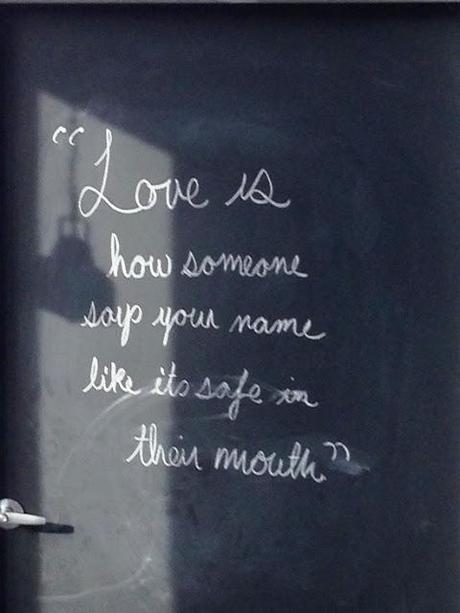 “Love is
how someone
say your name
like its safe in
their mouth.”